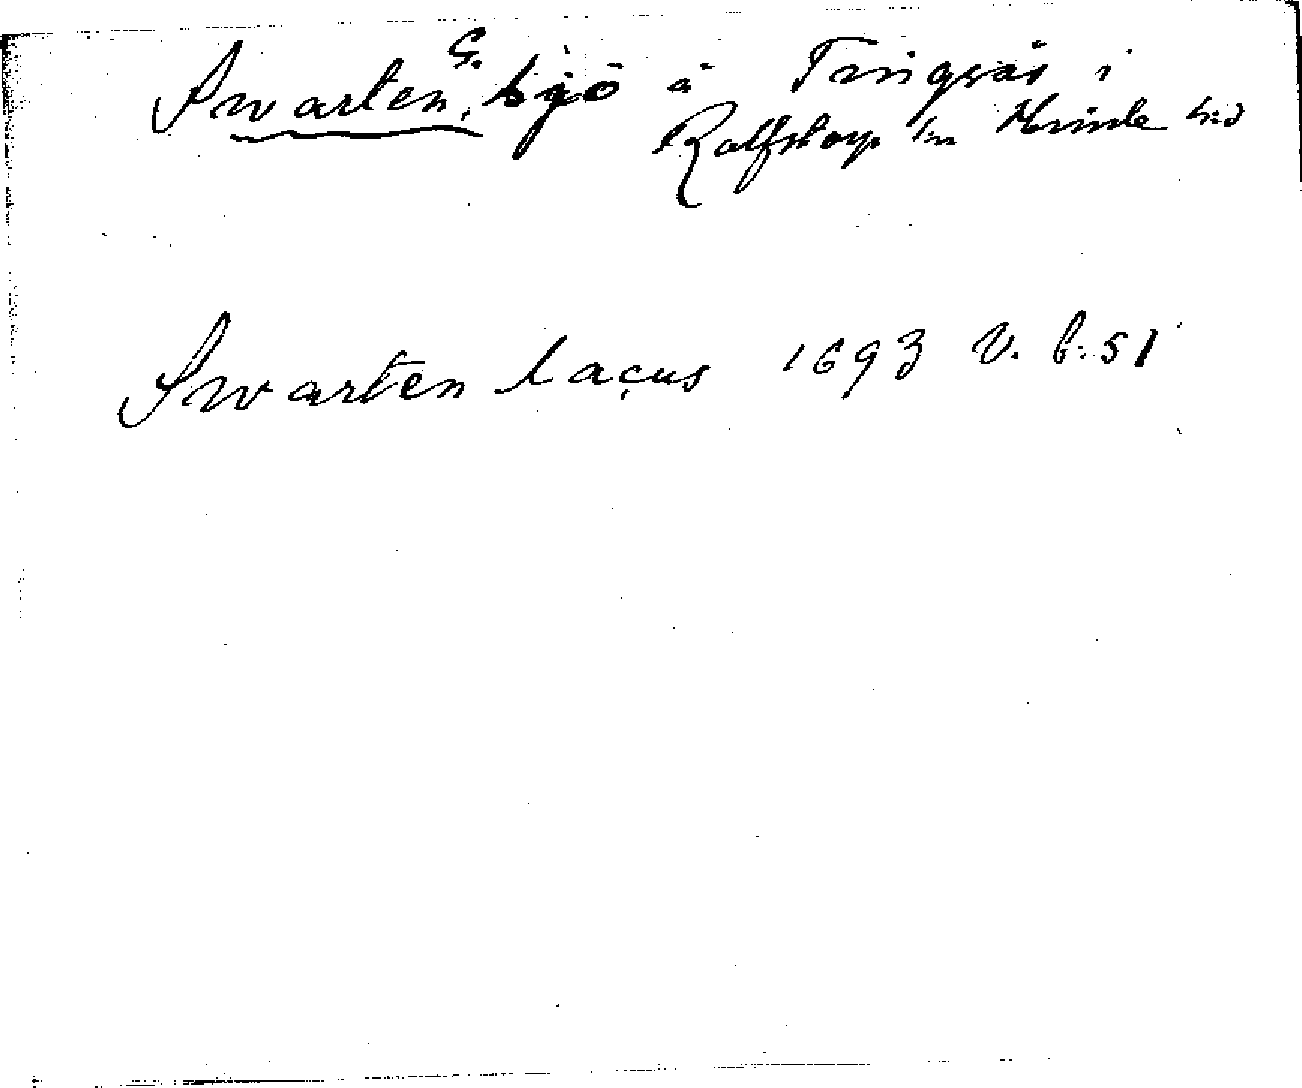 Swarten, G. sjö å Tingvås i
Rolfstorp sn Himle hd
Swarten lacus 1693 V. b: 51